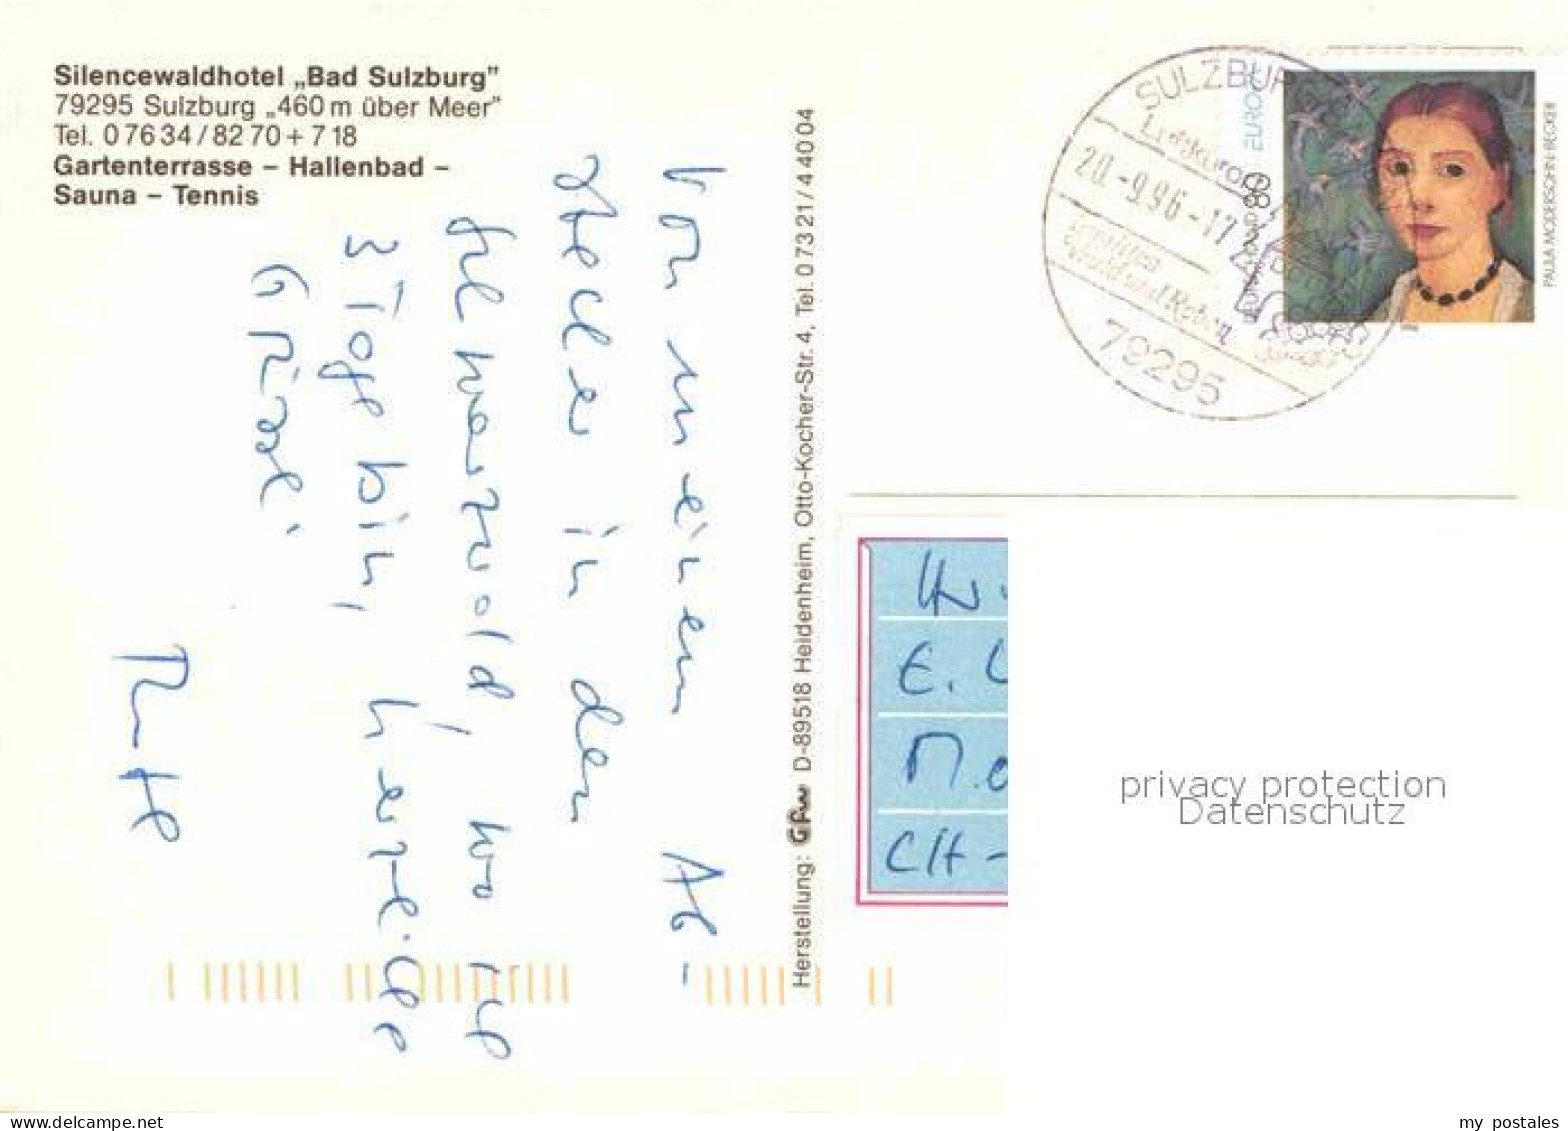 Silencewaldhotel „Bad Sulzburg"
79295 Sulzburg „460 m über Meer"
Tel. 0 76 34 / 82 70 + 7 18
Gartenterrasse – Hallenbad –
Sauna – Tennis
Von meinem Ab-
stecher in den
Schwarzwald, wo ich
3 Tage bin, herzliche
Grüsse!
Herstellung: Gfw D-89518 Heidenheim, Otto-Kocher-Str. 4, Tel. 0 73 21 / 4 40 04
SULZBUR
Luftkurort
20.-9.96-17
Wald und Reben
79295
EUROPA
PAULA MODERSOHN-BECKER
E.
CH-
privacy protection
Datenschutz
my postales